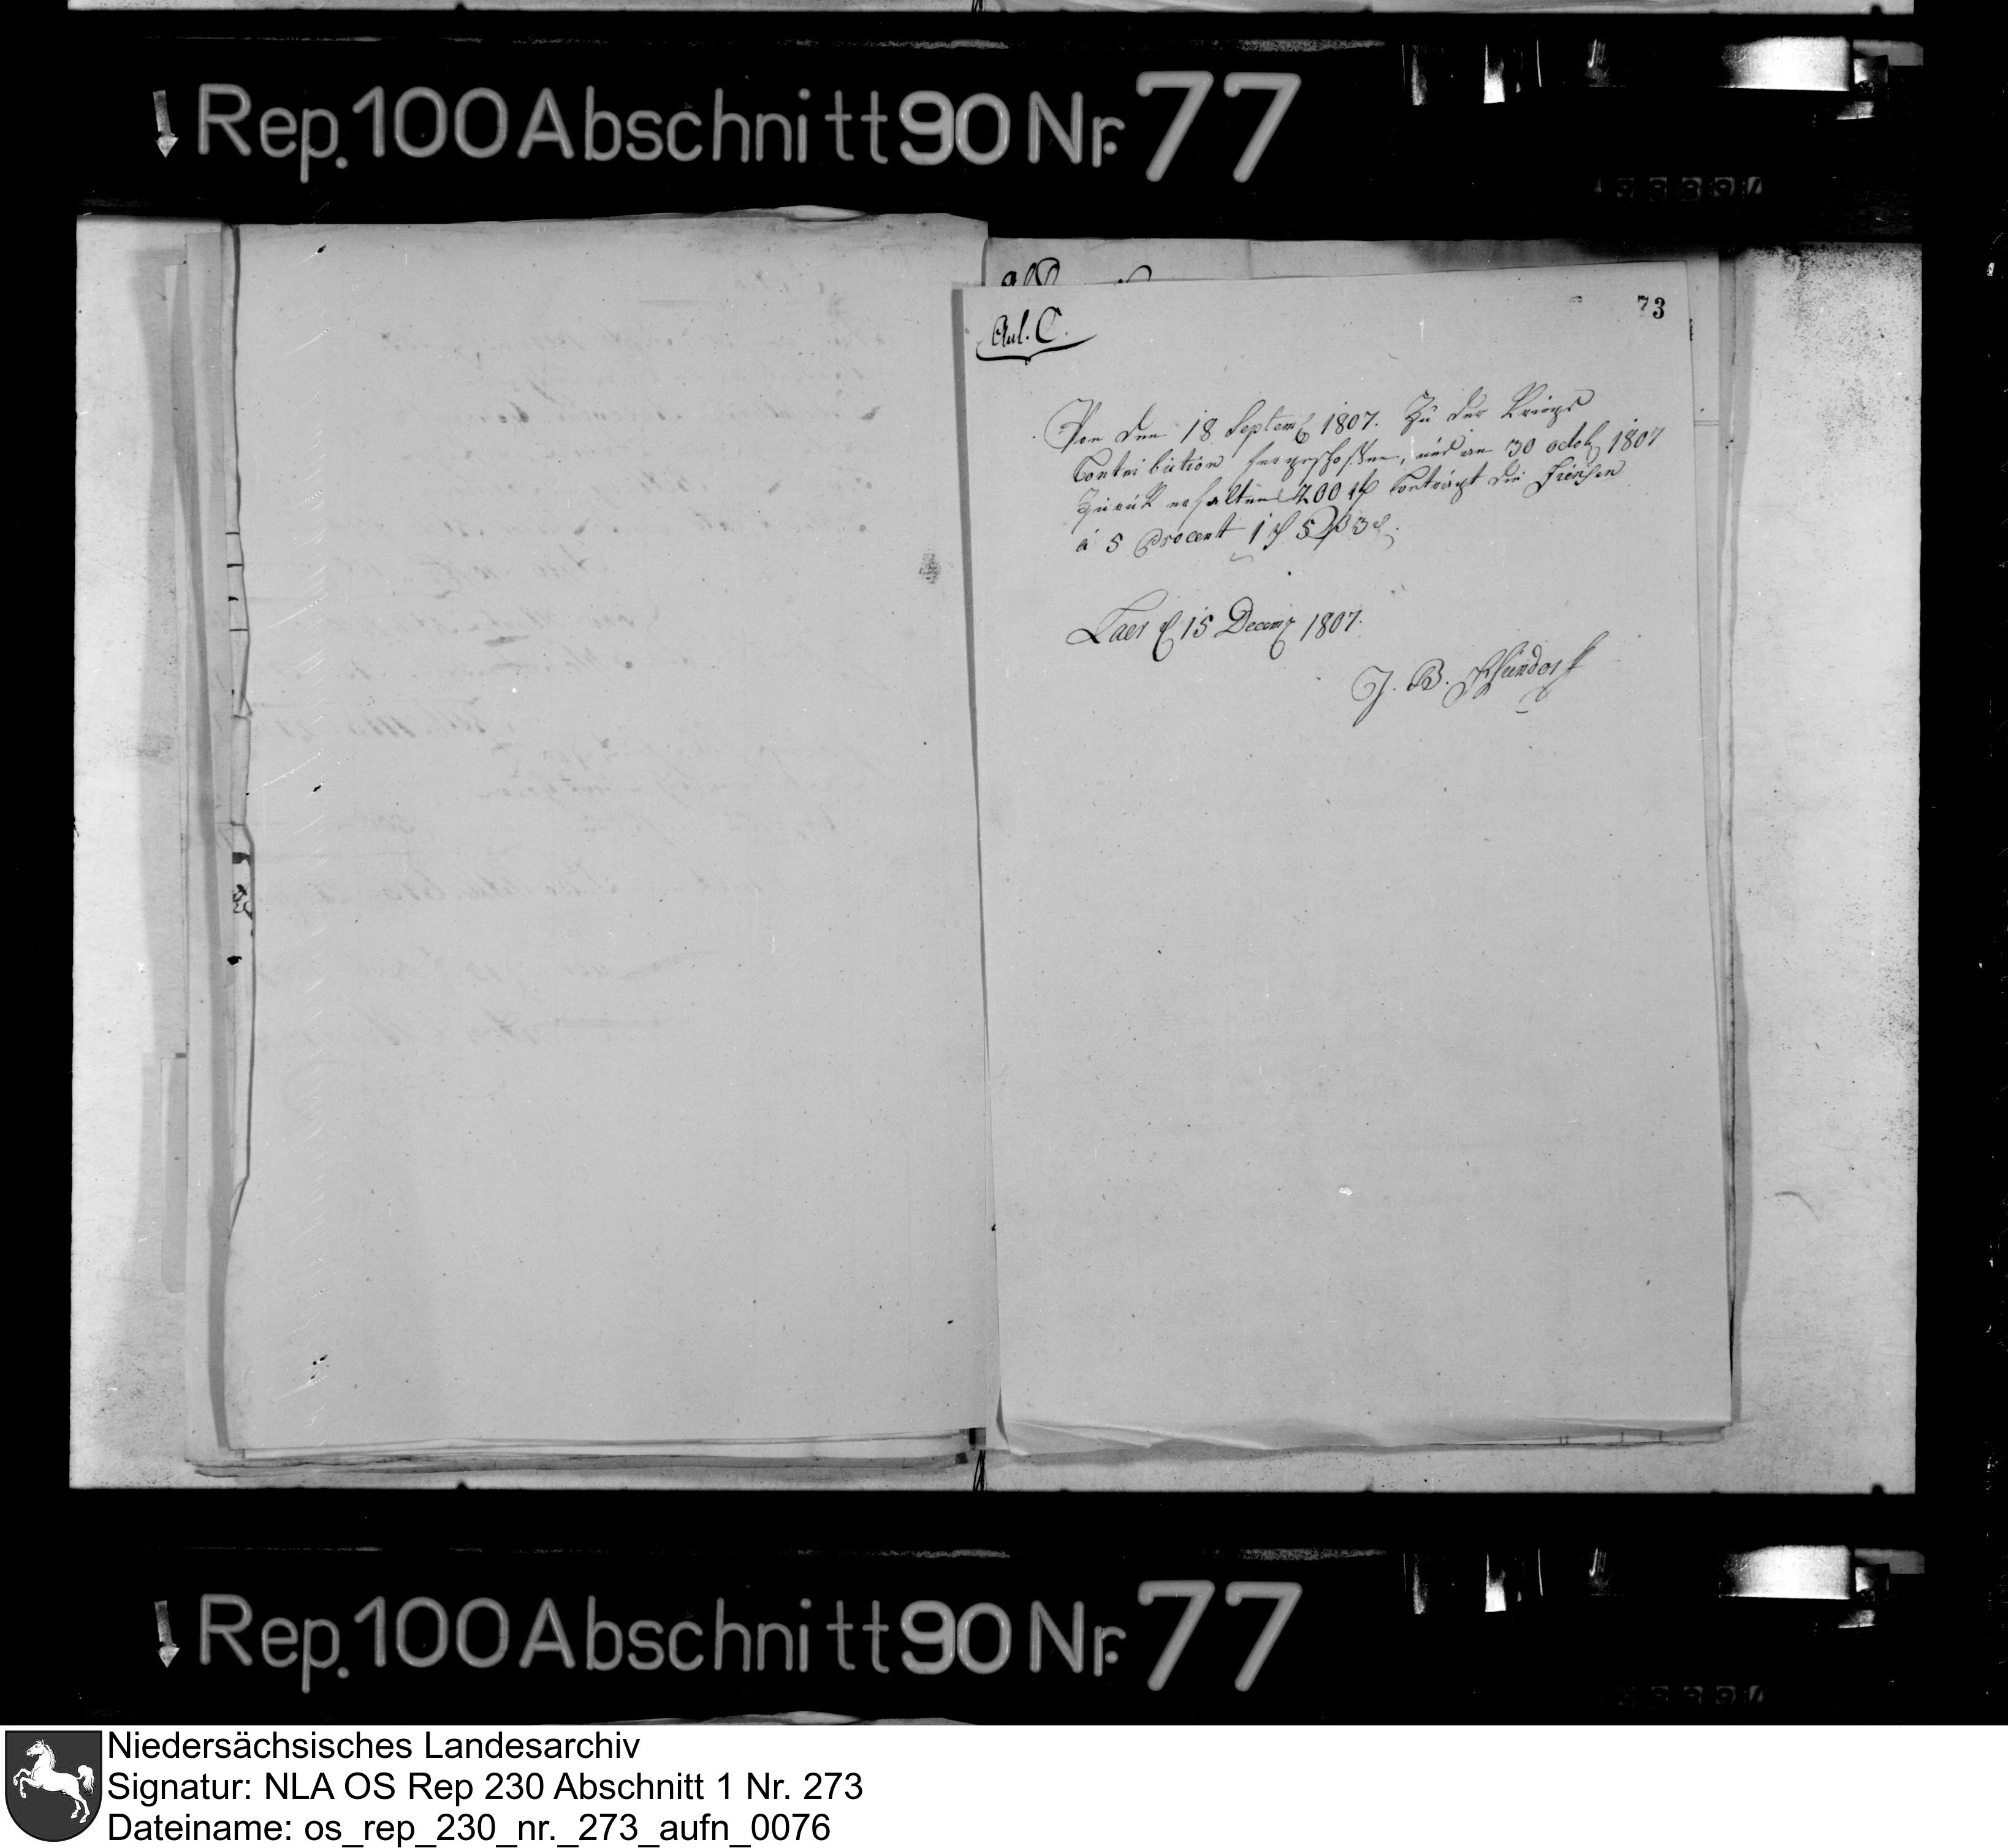 Rep. 100 Abschnitt 90 Nr. 77
73
Anl. C.
Von den 18 Septemb 1807. zu der Kriegs
Contribution hergeschoßen, und an 30 octob 1807
Zurück erhaltene 200 rth betragt die Zinsen
á 5 Procent 1 5 3
Laer d 15 Decemb 1807.
J. B.
Rep. 100 Abschnitt 90 Nr. 77
Niedersächsisches Landesarchiv
Signatur: NLA OS Rep 230 Abschnitt 1 Nr. 273
Dateiname: os_rep_230_nr._273_aufn_0076